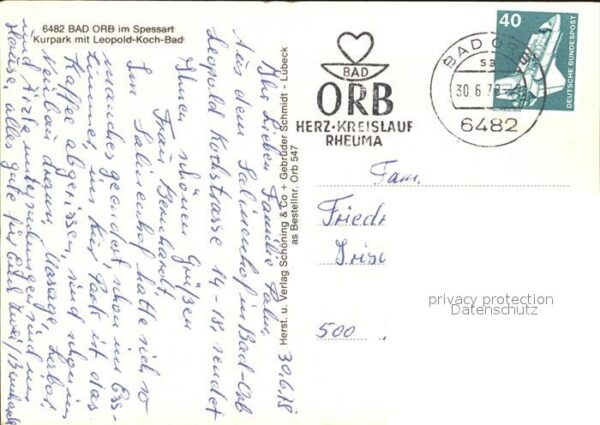 6482 BAD ORB im Spessart
Kurpark mit Leopold-Koch-Bad
Herst. u. Verlag Schöning & Co + Gebrüder Schmidt - Lübeck
as Bestellnr. Orb 547
BAD
ORB
HERZ·KREISLAUF
RHEUMA
BAD ORB
sa
30.6.78
6482
40
DEUTSCHE BUNDESPOST
30.6.78
Ihr lieben Familie
Aus dem Salinenhof in Bad-Orb
Leopold Kochstrasse 14-18 sendet
Ihnen schönen Grüßen
Frau Bernhardt.
Im Salinenhof hatte sich so
manches geändert, schon im Ess-
zimmer, im Kur Park ist das
Kaffee abgerissen, sind schon im
Neubau drann, Massage, Labor,
und Ärzteuntersuchungen sind im
Hause, alles gute für Euch
Fam.
Friedr
500
privacy protection
Datenschutz